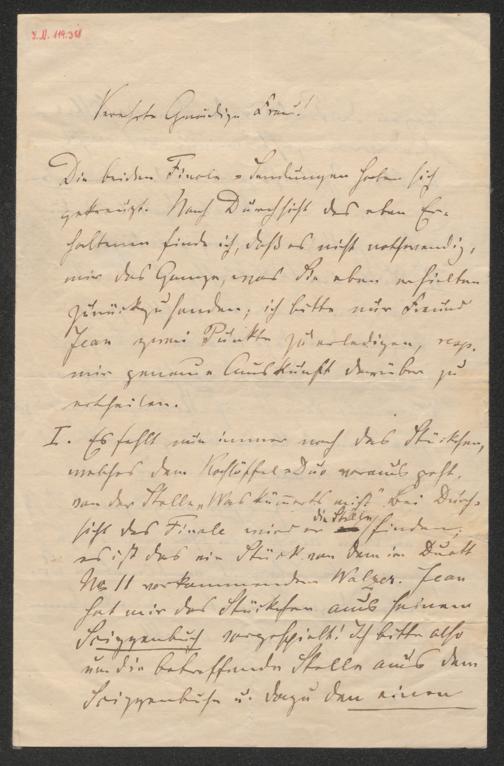 Verehrte Gnädige Frau!
Die beiden Finale-Sendungen haben sich
gekreuzt. Nach Durchsicht des eben Er-
haltenen finde ich, daß es nicht nothwendig,
mir das Ganze, was Sie eben erhielten
zurückzusenden; ich bitte nur Freund
Jean zwei Punkte zu erledigen, resp.
mir genaue Auskunft darüber zu
ertheilen.
I. Es fehlt nun immer noch das Stückchen,
welches dem Kochlöffel-Duo voraus geht,
von der Stelle „Was kümmerts mich" Bei Durch-
sicht des Finale wird er die Stelle finden;
es ist das ein Stück von dem im Duett
No 11 vorkommenden Walzer. Jean
hat mir das Stückchen aus seinem
Scizzenbuch vorgespielt! Ich bitte also
um die betreffende Stelle aus dem
Scizzenbuche u. dazu den einen